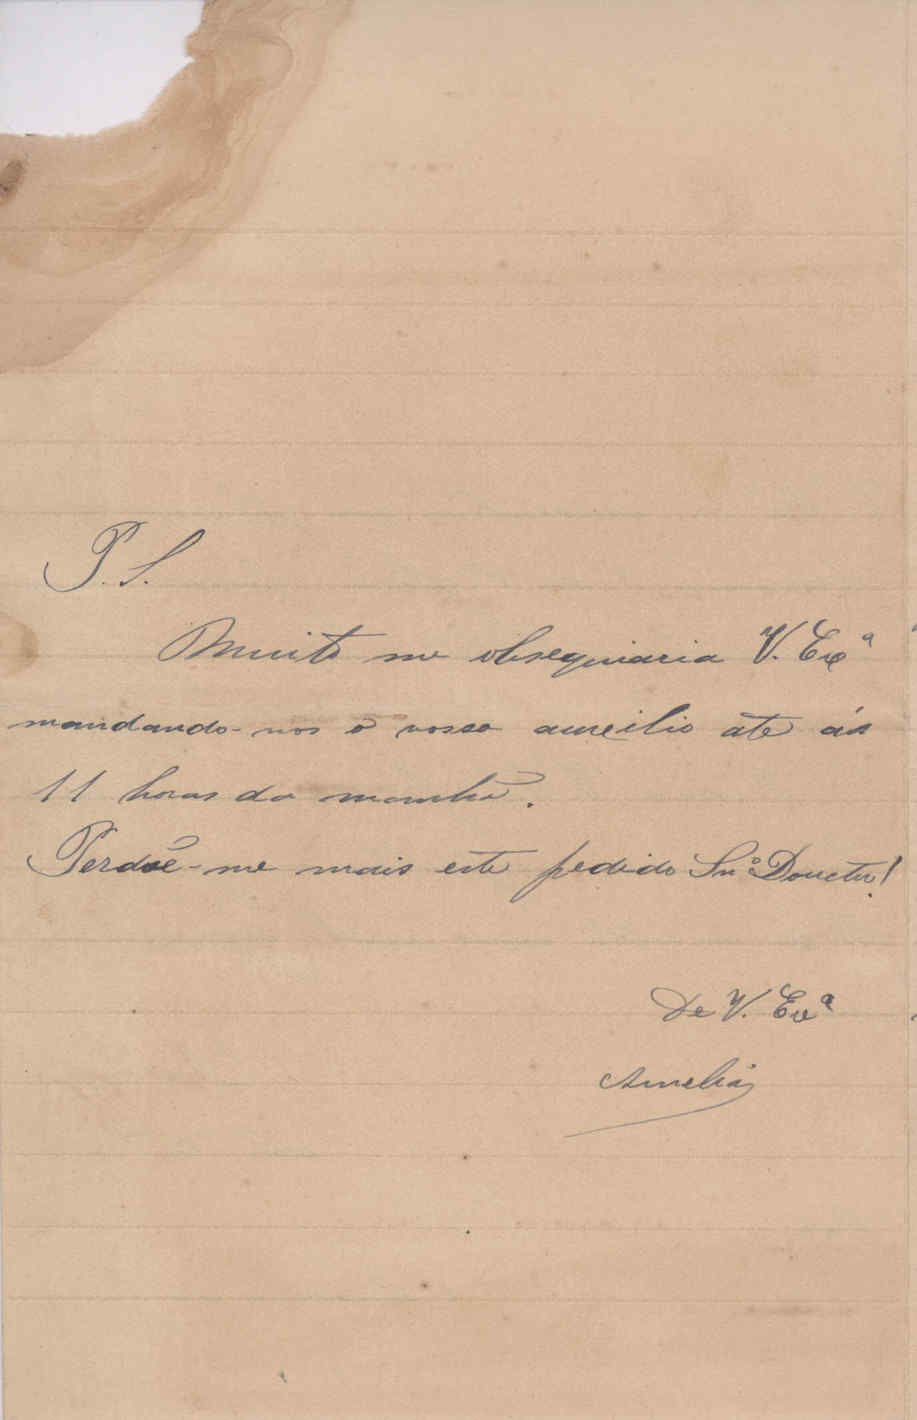 P. S.
Muito me obsequiaria V. Exª
mandando-nos o vosso auxilio até ás
11 horas da manhã.
Perdoê-me mais este pedido Snr Douctor!
De V. Exª
Amelia